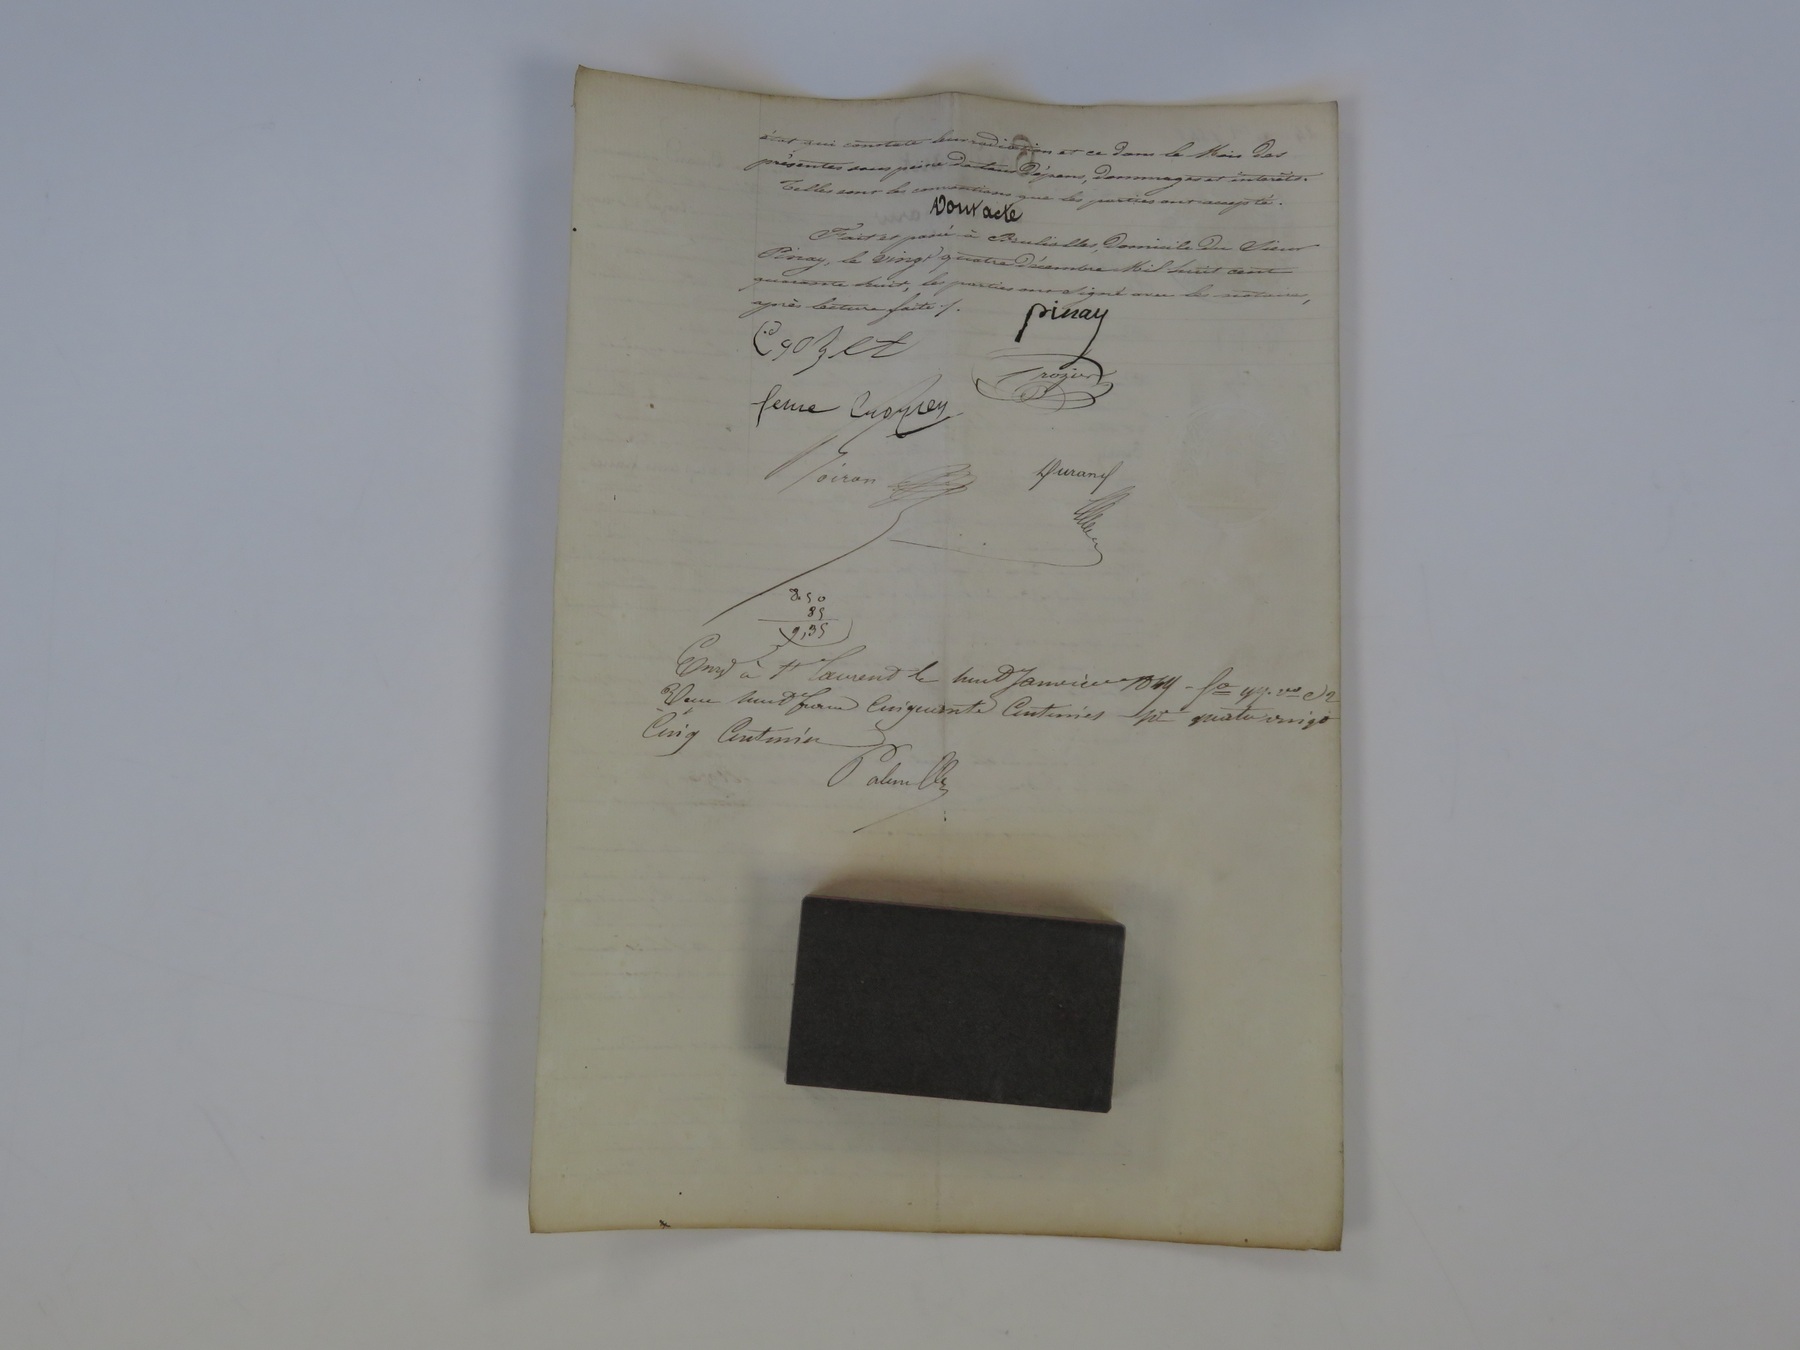 état qui constate leur radiation et ce dans le Mois des
présentes sous peine de tous Dépens, dommages et intérêts.
Telles sont les conventions que les parties ont accepté.
Dont acte
Fait et passé à Domicile du Sieur
Pinay, le vingt quatre Décembre Mil huit cent
quarante huit, les parties ont signé avec les notaires,
après lecture faite /.
pinay
Crozet
Trozier
feme
Poiron
Durand
8.50
85
9,35
Enrg à St Laurent le huit Janvier 1849 - fo 97. vo C 2
Reçu huit francs Cinquante Centimes - pr dme quatre vingt
Cinq Centimes